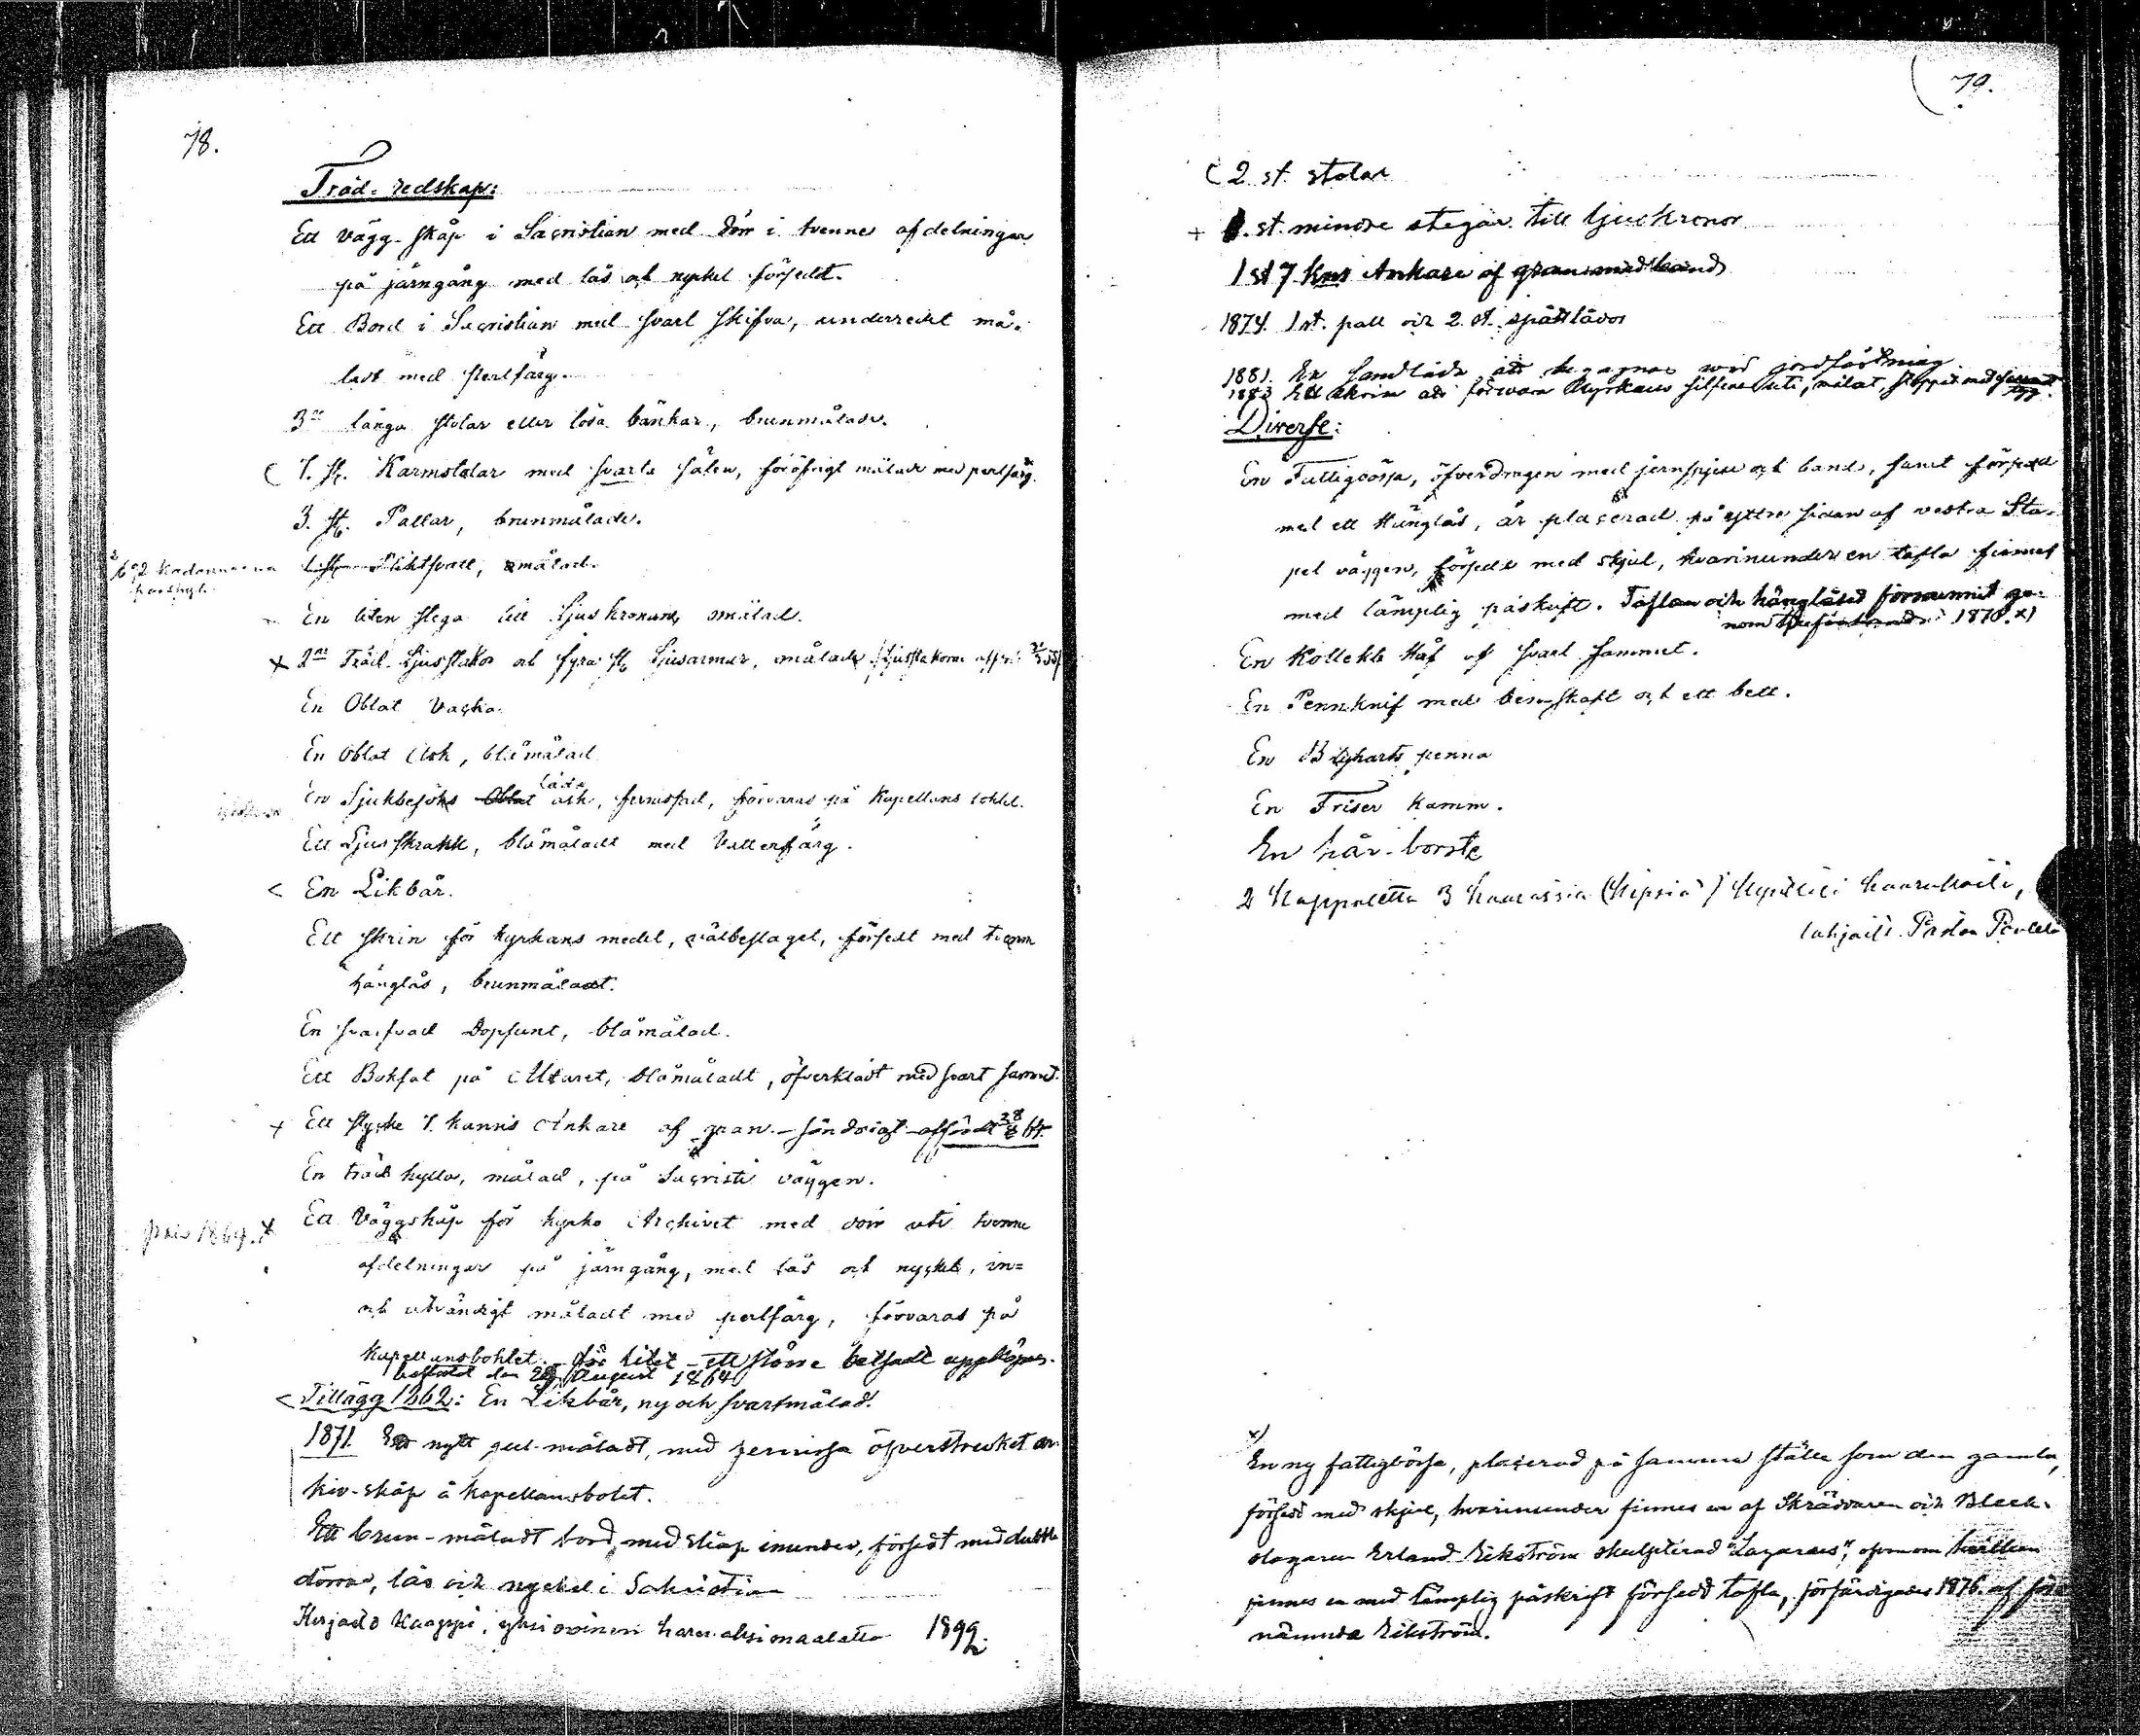 78.
Träd-redskap:
Ett vägg-skåp i Sacristian med dörr i tvenne afdelningar
på järngång med lås och nyckel försedt.
Ett Bord i Sacristian med svart skifva, underredet må-
ladt med perlfärg.
3ne långa stolar eller lösa bänkar, brunmålade.
7. st. Karmstolar med svarta säten, föröfrigt målade med perlfärg.
3. st. Pallar, brunmålade.
omålad.
En liten stega till Ljuskronan, omålad.
2ne Träd-Ljusstakar och fyra st. Ljusarmar, målade
En Oblat Vacka.
En Oblat Ask, blåmålad
En Sjukbesöks Oblat ask, fernissad, förvaras på Kapellans bohlet.
låda
Ett Ljus skrank, blåmåladt med Vattenfärg.
< En Likbår.
Ett skrin för kyrkans medel, välbeslaget, försedt med
hänglås, brunmåladt.
En svarfvad Dopfunt, blåmålad.
Ett Bokfat på Altaret, blåmåladt, öfverklädt med svart sammet.
+ Ett stycke 7. kannis Ankare af gran. - söndrigt - affördt 64.
En träd hylla, målad, på Sacristi väggen.
Ett Väggskåp för kyrko Archivet med dörr uti tvenne
afdelningar på järngång, med lås och nyckel, in=
och utvändigt måladt med perlfärg, förvaras på
Kapellansbohlet. - för litet - ett större
den August 1864
< Tillägg 1862: En Likbår, ny och svartmålad.
1871. Ett nytt gul-måladt, med fernissa öfverstruket ar-
kiv-skåp å kapellansbolet.
Ett brun-måladt bord, med skåp inunder, försedt med dubbla
dörrar, lås och nyckel i Sakristian
Kirjasto Kaappi, yksi ovinen 1892.
79.
( 2 st. stolar
+ st. mindre stegar till ljuskronor
1 st 7 kns Ankare af gran med band
1874. 1 st. pall och 2. st. spåttlådor
1881. En Sandlåda att begagnas wid jordfästning
1883 Ett skrin att förvara Kyrkans silfver uti, målat,
Diverse:
En Fattigbössa, öfverdragen med jernspjeror och band, samt försedd
med ett Hänglås, är placerad på yttre sidan af vestra Sta-
pel väggen, försedd med skjul, hvarinunder en tafla finnes
med lämplig påskrift. Taflan och hänglåset försvunnit ge-
nom 1870. x)
En Kollekts Håf af svart sammet.
En Pennknif med ben-skaft och ett bett.
En Blyharts penna
En Friser kamm.
En hår-borste
2 3
x)
En ny fattigbössa, placerad på samma ställe som den gamla,
försedd med skjul, hvarinunder finnes en af Skräddaren och Bleck-
slagaren Erland Eekström skulpterad "Lazarus", ofvanom hvilken
finnes en med lämplig påskrift försedd tafla, förfärdigades 1876. af för
nämnda Eekström.